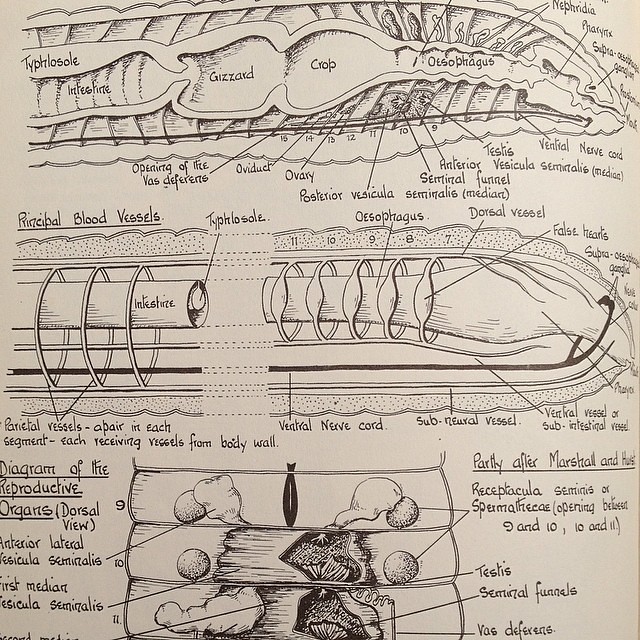 Nephridia
Pharynx
Typhlosole
Intestine
Gizzard
Crop
Oesophagus
15 14 13 12 11 10 9
Opening of the
Vas deferens
Oviduct
Ovary
Testis
Ventral Nerve cord
Anterior
Vesicula seminalis (median)
Seminal funnel
Posterior vesicula seminalis (median)
Principal Blood Vessels.
Typhlosole.
Oesophagus.
Dorsal vessel
False hearts
11 10 9 8 7
Intestine
Pharynx
Parietal vessels - a pair in each
segment - each receiving vessels from body wall.
Ventral Nerve cord.
Sub-neural vessel.
Ventral vessel or
sub-intestinal vessel
Diagram of the
Reproductive
Organs (Dorsal
View)
Partly after Marshall and
Receptacula seminis or
Spermathecae (opening between
9 and 10, 10 and 11)
9
Anterior lateral
Vesicula seminalis
10
First median
Vesicula seminalis
11
Testis
Seminal funnels
Vas deferens.
Second median